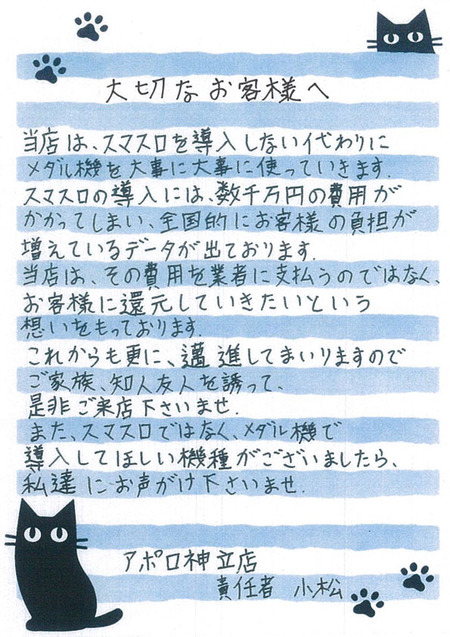 大切なお客様へ
当店は、スマスロを導入しない代わりに
メダル機を大事に大事に使っていきます.
スマスロの導入には、数千万円の費用が
かかってしまい、全国的にお客様の負担が
増えているデータが出ております.
当店は、その費用を業者に支払うのではなく、
お客様に還元していきたいという
想いをもっております.
これからも更に、邁進してまいりますので
ご家族、知人友人を誘って、
是非ご来店下さいませ.
また、スマスロではなく、メダル機で
導入してほしい機種がございましたら、
私達にお声がけ下さいませ.
アポロ神立店
責任者 小松